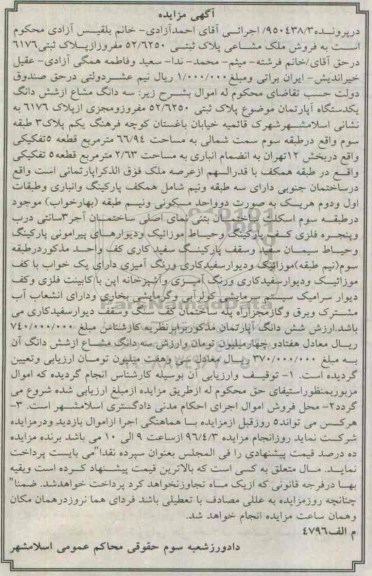 آگهی مزایده
درپرونده۹۵۰۴۳۸/۳ اجرائی آقای احمدآزادی- خانم بلقیس آزادی محکوم
است به فروش ملک مشاعی پلاک ثبتی ۵۲/۶۲۵۰ مفروزازپلاک ثبتی ۶۱۷۶
درحق آقای/خانم فرشته- میثم- محمد- ندا- سعید وفاطمه همگی آزادی- عقیل
خیراندیش- ایران براتی ومبلغ۱/۰۰۰/۰۰۰ ریال نیم عشردولتی درحق صندوق
دولت حسب تقاضای محکوم له اموال بشرح زیر: سه دانگ مشاع ازشش دانگ
یکدستگاه آپارتمان موضوع پلاک ثبتی ۵۲/۶۲۵۰ مفروزومجزی ازپلاک ۶۱۷۶ به
نشانی اسلامشهرشهرک قائمیه خیابان باغستان کوچه فرهنگ یکم پلاک۳ طبقه
سوم واقع درطبقه سوم سمت شمالی به مساحت ۶۶/۹۴ مترمربع قطعه ۵تفکیکی
واقع دربخش ۱۲تهران به انضمام انباری به مساحت ۲/۶۳ مترمربع قطعه۵ تفکیکی
واقع در طبقه همکف با قدرالسهم ازعرصه ملک فوق الذکراپارتمانی است واقع
درساختمان جنوبی دارای سه طبقه ونیم شامل همکف پارکینگ وانباری وطبقات
اول ودوم هریک به صورت دوواحد مسکونی ونیم طبقه (بهارخواب) موجود
درطبقه سوم اسکلت ساختمان بتنی نمای اصلی ساختمان آجر۳سانتی درب
وپنجره فلزی کف پارکینگ وحیاط موزائیک ودیوارهای پیرامونی پارکینگ
وحیاط سیمان سفید وسقف پارکینگ سفیدکاری کف واحد مذکوردرطبقه
سوم(نیم طبقه)موزائیک ودیوارسفیدکاری ورنگ آمیزی دارای یک خواب با کف
موزائیک ودیوارسفیدکاری ورنگ آمیزی وآشپزخانه اپن با کابینت فلزی وکف
دیوار سرامیک سیستم سرمایشی کولرآبی وگرمایشی بخاری ودارای انشعاب آب
مشترک وبرق وگازمجزاراه پله ساختمان کف سنگ وسقف دیوارسفیدکاری می
باشد.ارزش شش دانگ آپارتمان مذکوربرابرنظریه کارشناس مبلغ ۷۴۰/۰۰۰/۰۰۰
ریال معادل هفتادو چهارمیلیون تومان وارزش سه دانگ مشاع ازشش دانگ آن
به مبلغ ۳۷۰/۰۰۰/۰۰۰ ریال معادل سی وهفت میلیون تومسان ارزیابی وتعیین
گردیده است. ۱- توقیف وارزیابی آن بوسیله کارشناس انجام گردیده که اموال
مزبوربمنظوراستیفای حق محکوم له ازطریق مزایده ازمبلغ ارزیابی شده شروع می
گردد۲- محل فروش اموال اجرای احکام مدنی دادگستری اسلامشهر است. ۳-
هرکس می تواند۵ روزقبل ازمزایده با هماهنگی اجرا ازاموال بازدید ودرمزایده
شرکت نماید روزانجام مزایده ۹۶/۴/۳ ازساعت ۹ الی ۱۰ می باشد برنده مزایده
ده درصد قیمت پیشنهادی را فی المجلس بعنوان سپرده نقدا"می بایست پرداخت
نماید. مال متعلق به کسی است که بالاترین قیمت پیشنهاد کرده است وبقیه
بها درفرجه قانونی که ازیک ماه تجاوزنخواهد کرد پرداخت خواهدشد. ضمنا"
چنانچه روزمزایده به عللی مصادف با تعطیلی باشد فردای هما نروزدرهمان مکان
وهمان ساعت مزایده انجام خواهد شد.
م الف۴۷۹۶
دادورزشعبه سوم حقوقی محاکم عمومی اسلامشهر